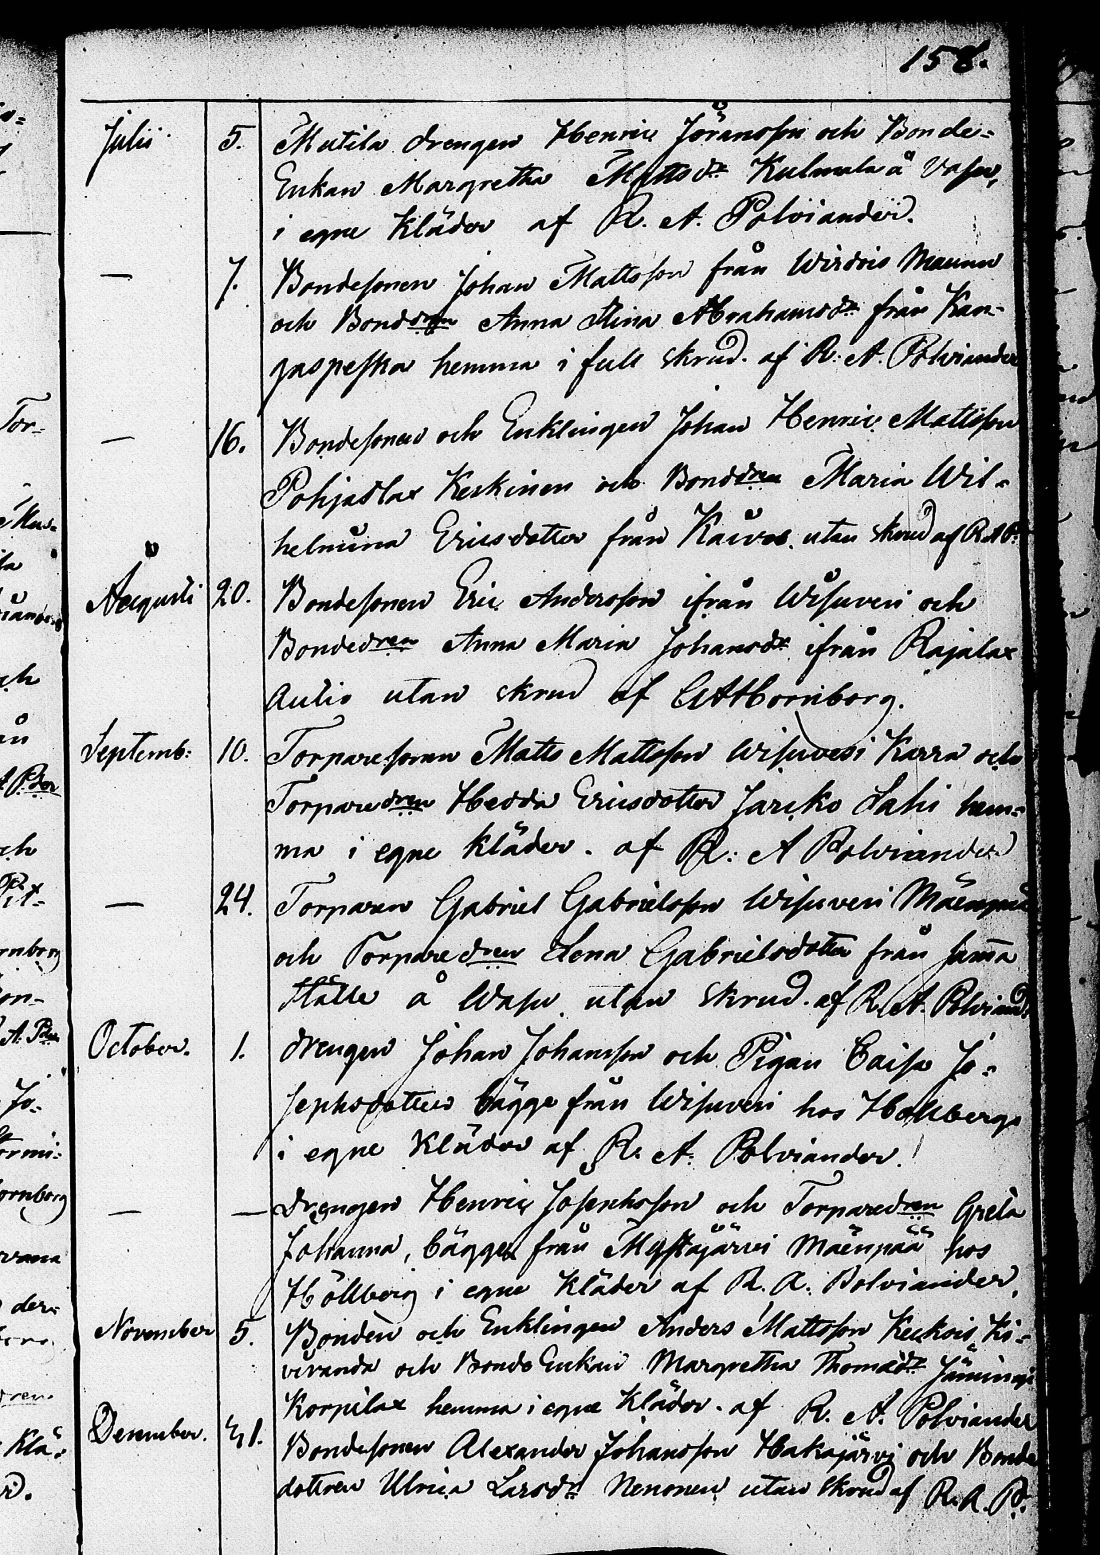 158.
Julii 5. Matila drengen Henric Jöransson och Bonde-
Enkan Margretha Mattsdr Kulmala å Vasu,
i egne Kläder af R. A. Polviander.
— 7. Bondesonen Johan Mattsson från Wirdois Maunu
och Bonddren Anna Stina Abrahamsdr från Kan-
gaspeska hemma i full skrud. af R. A. Polviander
— 16. Bondesonen och Enklingen Johan Henric Mattsson
Pohjaslax Keskinen och Bonddren Maria Wil-
helmina Ericsdotter från utan skrud af R A P.
Augusti 20. Bondesonen Eric Andersson ifrån Wisuveri och
Bondedren Anna Maria Johansdr ifrån Rajalax
Autio utan skrud af CAHornborg.
Septemb: 10. Torparesonen Matts Mattsson Wisuvesi Karra och
Torparedren Hedda Ericsdotter Jarcko Lahi hem-
ma i egne kläder. af R: A Polviander
— 24. Torparen Gabriel Gabrielsson Wisuveri Mäenpää
och Torparedren Lena Gabrielsdotter från samma
ställe å Wasu utan skrud. af R. A. Polviand.
October. 1. drengen Johan Johansson och Pigan Caisa Jo-
sephsdotter bägge från Wisuveri hos Hollbergs
i egne Kläder af R. A. Polviander.
— — drengen Henric Josephsson och Torparedren Greta
Johanna, bägge från Myllyjärvi Mäenpää hos
Höllberg i egne Kläder af R. A. Polviander.
November 5. Bonden och Enklingen Anders Mattsson Keckois Ki-
viranda och Bonde Enkan Margretha Thomædr
Korpilax hemma i egne Kläder. af R. A. Polviander
December. 31. Bondesonen Alexander Johansson Hakajärvi och Bonde
dottren Ulrica Larsdr Nenonen utan skrud af R. A. P.